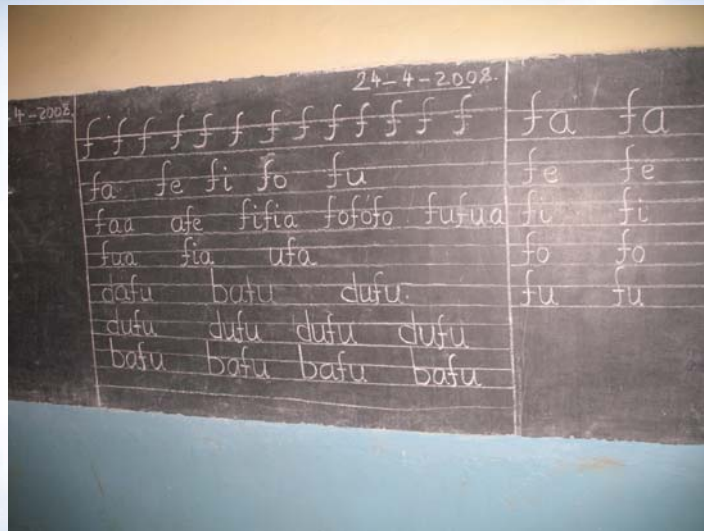 4-2008.
24-4-2008.
f f f f f f f f f f f f f
fa fe fi fo fu
faa afe fifia fofofo fufua
fua fia ufa
dafu bafu dufu.
dufu dufu dufu dufu
bafu bafu bafu bafu
fa fa
fe fe
fi fi
fo fo
fu fu